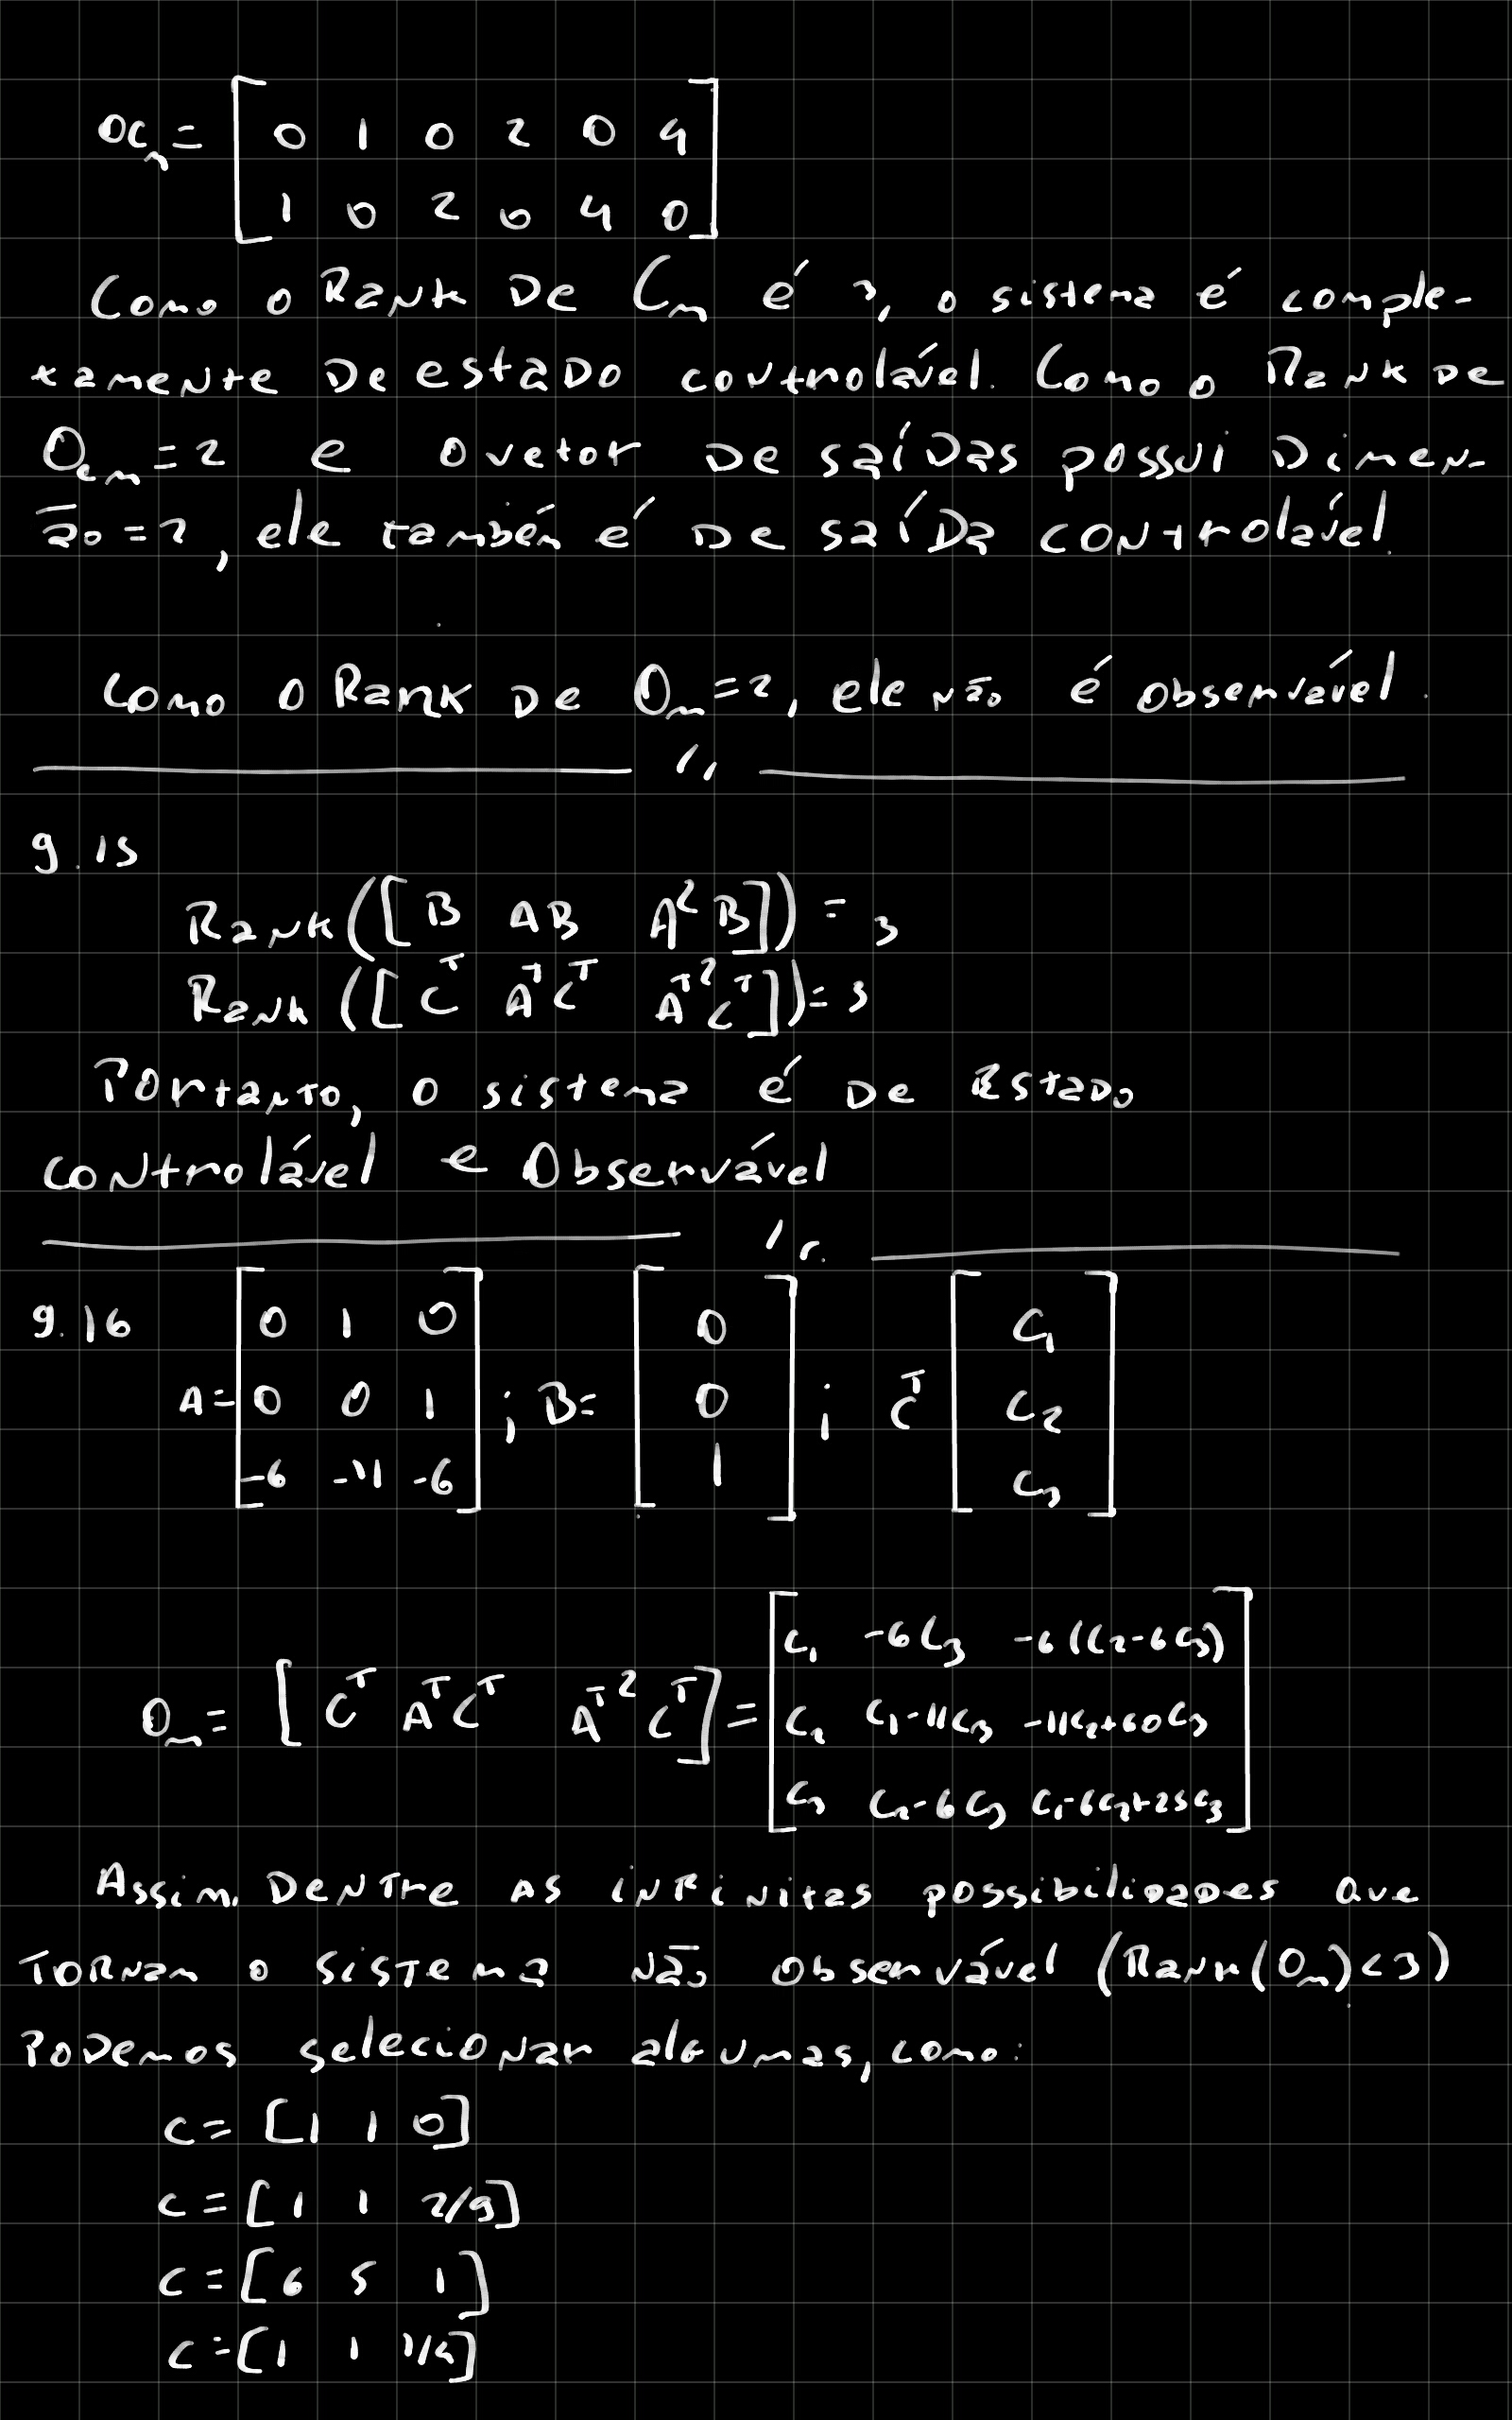 OC_m = [0 1 0 2 0 4
1 0 2 0 4 0]
Como o Rank De C_m é 3, o sistema é comple-
tamente De estado controlável. Como o Rank De
O_cm = 2 e o vetor De saídas possui Dimen-
ão = 2, ele também é De saída controlável.
Como o Rank De O_m = 2, ele não é observável.
9.15
Rank([B AB A²B]) = 3
Rank([C^T A^T C^T A^T² C^T]) = 3
Portanto, o sistema é De Estado
controlável e Observável
9.16
A = [0 1 0
0 0 1
-6 -11 -6] ; B = [0
0
1] ; C^T [C₁
C₂
C₃]
O_m = [C^T A^T C^T A^T² C^T] = [C₁ -6C₃ -6(C₂-6C₃)
C₂ C₁-11C₃ -11C₂+60C₃
C₃ C₂-6C₃ C₁-6C₂+25C₃]
Assim, Dentre as infinitas possibilidades que
tornam o sistema não observável (Rank(O_m)<3)
Podemos selecionar algumas, como:
C = [1 1 0]
C = [1 1 2/9]
C = [6 5 1]
C = [1 1 1/4]